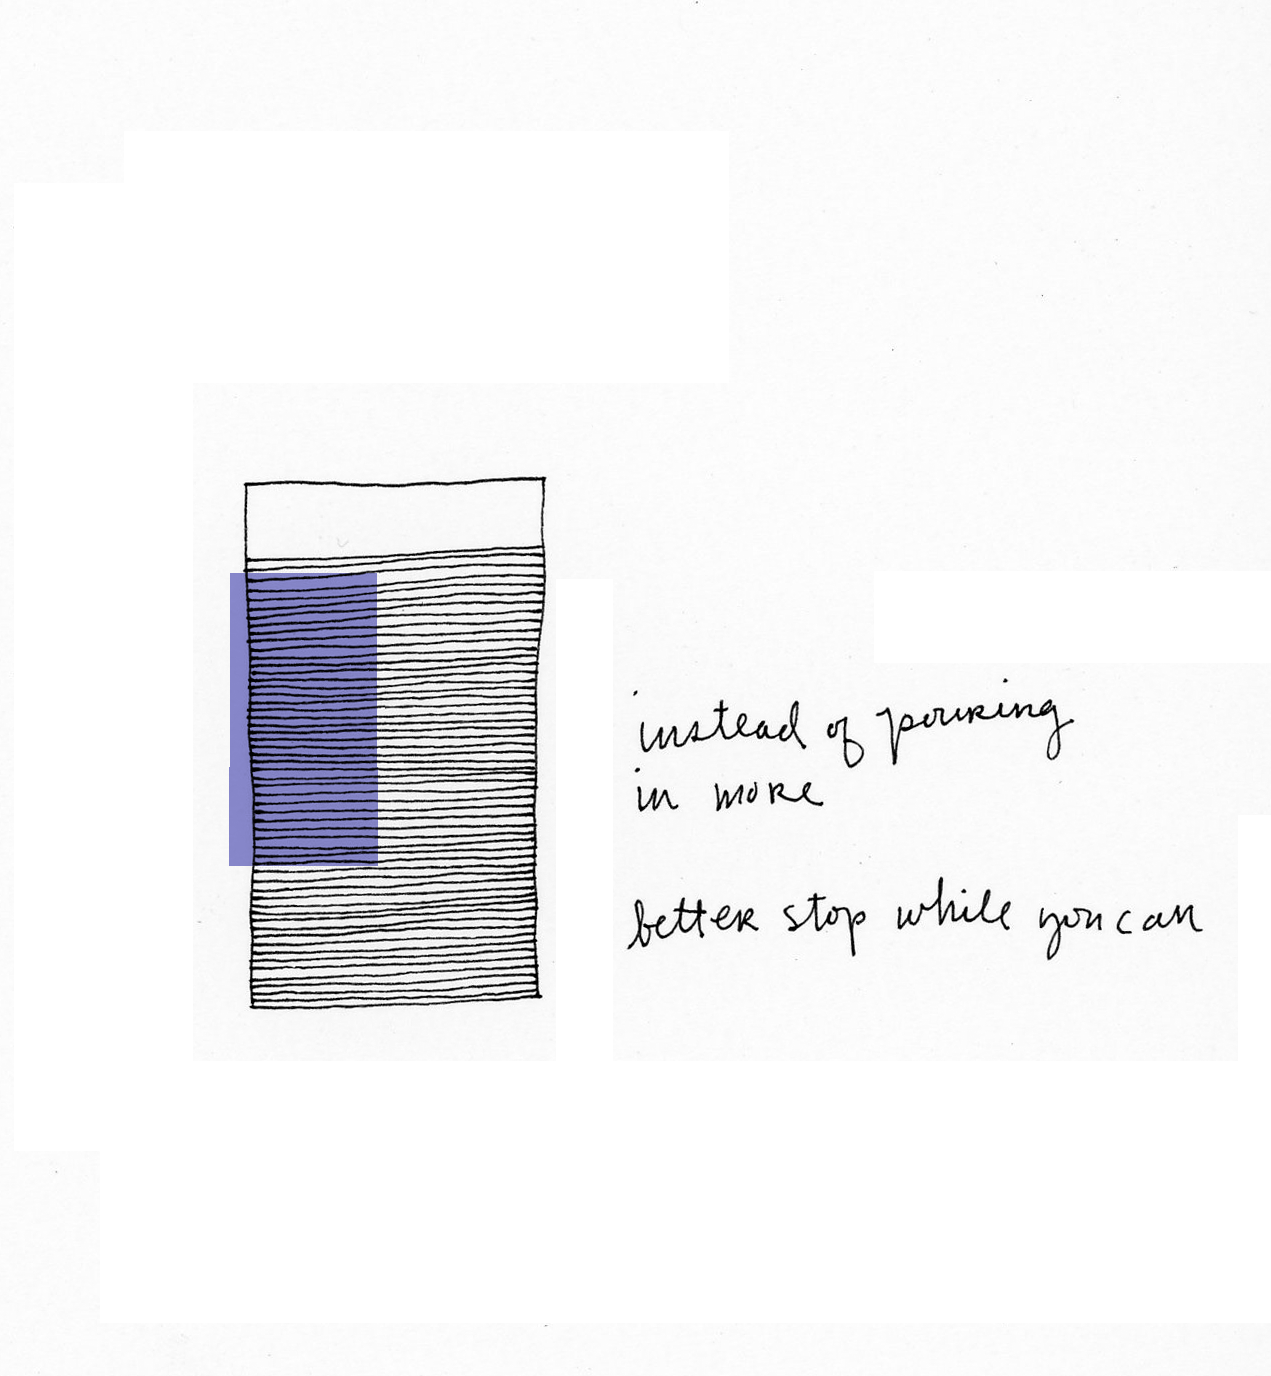 instead of pouring
in more
better stop while you can